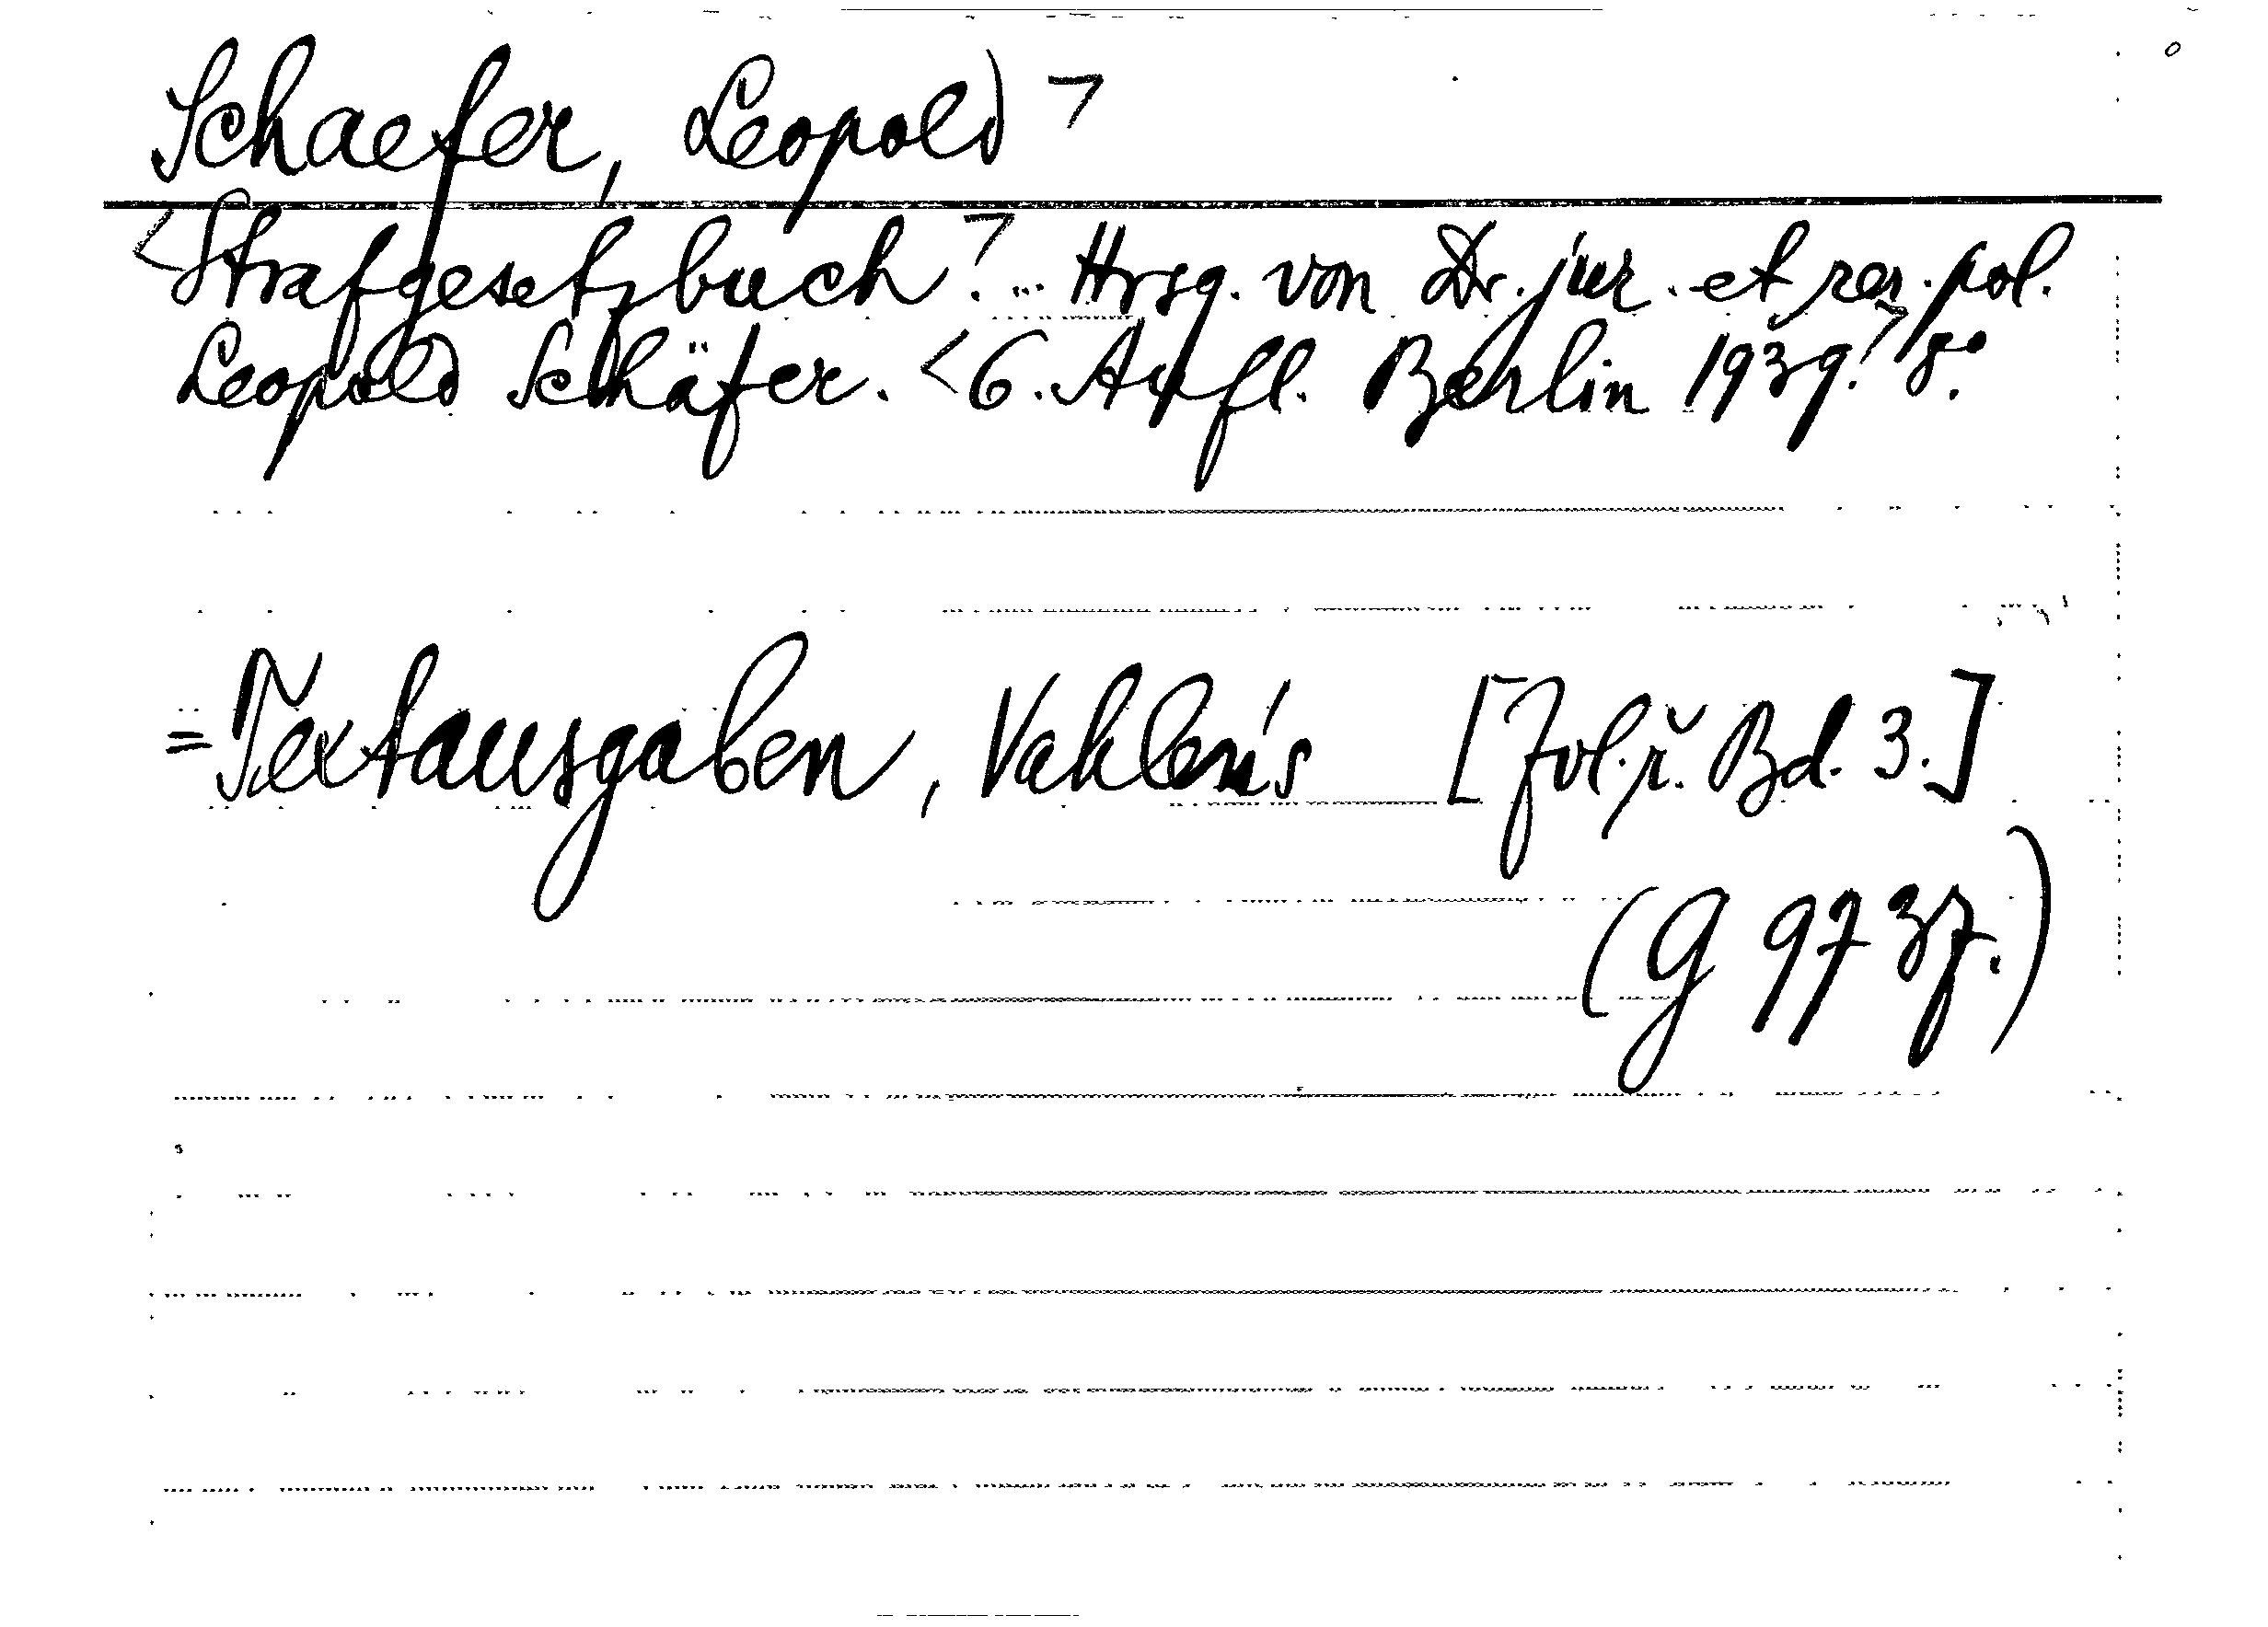 Schaefer, Leopold ㄱ
<Strafgesetzbuch.ㄱ... Hrsg. von Dr. jur. et rer. pol.
Leopold Schäfer. <6. Aufl. Berlin 1939.ㄱ 8°.
=Textausgaben, Vahlen's [Bd. 3.]
(G 9737.)